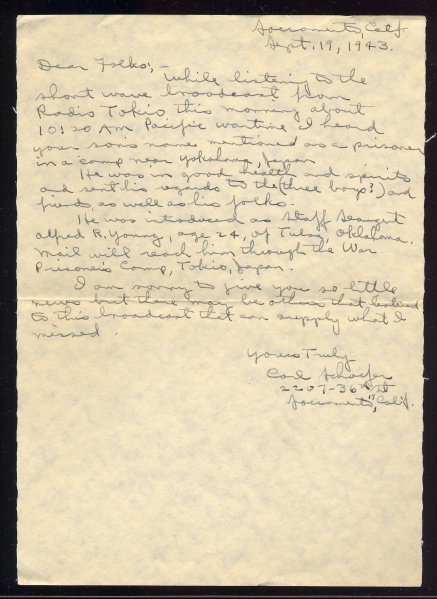 Sacramento, Calif.
Sept. 19, 1943.
Dear Folks; -
While listening to the
short wave broadcast from
Radio Tokio this morning about
10:20 AM Pacific wartime I heard
your sons name mentioned as a prisoner
in a camp near Yokohama, Japan
He was in good health and spirits
and sent his regards to the (three boys?) and
friends as well as his folks.
He was introduced as Staff Seargent
Alfred R. Young, age 24, of Tulsa, Oklahoma.
Mail will reach him through the War
Prisoners Camp, Tokio, Japan.
I am sorry to give you so little
news but there may be others that listened
to this broadcast that can supply what I
missed.
Yours Truly
Carl Schaefer
2207-36th St
Sacramento, 17, Calif.